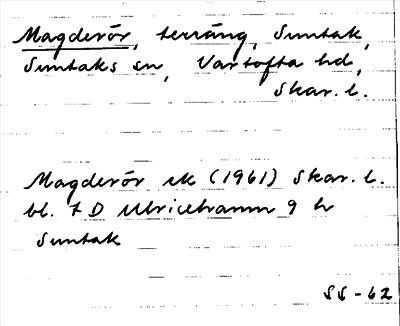 Magderör, terräng, Suntak,
Suntaks sn, Vartofta hd,
Skar. l.
Magderör ek (1961) Skar. l.
bl. 7 D Ulricehamn 9 h
Suntak
SS-62